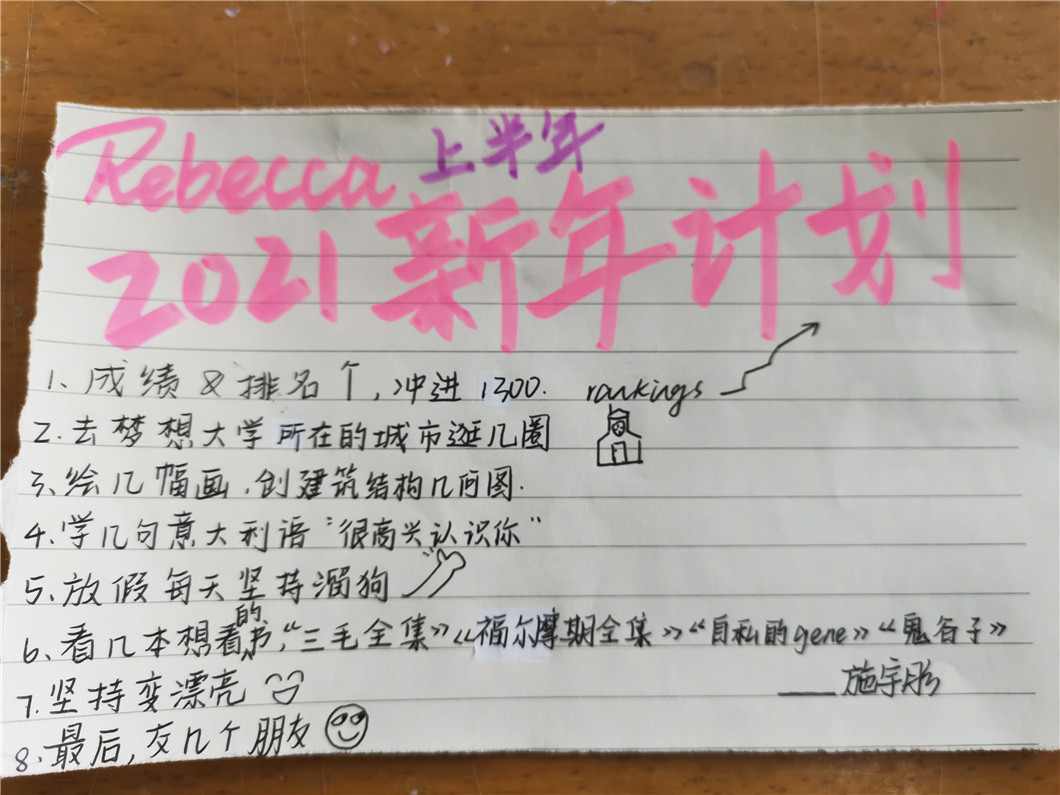 Rebecca 上半年
2021新年计划
1、成绩&排名个,冲进1300. rankings
2.去梦想大学所在的城市逛几圈
3、绘几幅画,创建筑结构几何图.
4、学几句意大利语“很高兴认识你”
5、放假每天坚持溜狗
6、看几本想看的书,“三毛全集》《福尔摩斯全集》“自私的gene》“鬼谷子》
7.坚持变漂亮
——施宇彤
8.最后,交几个朋友